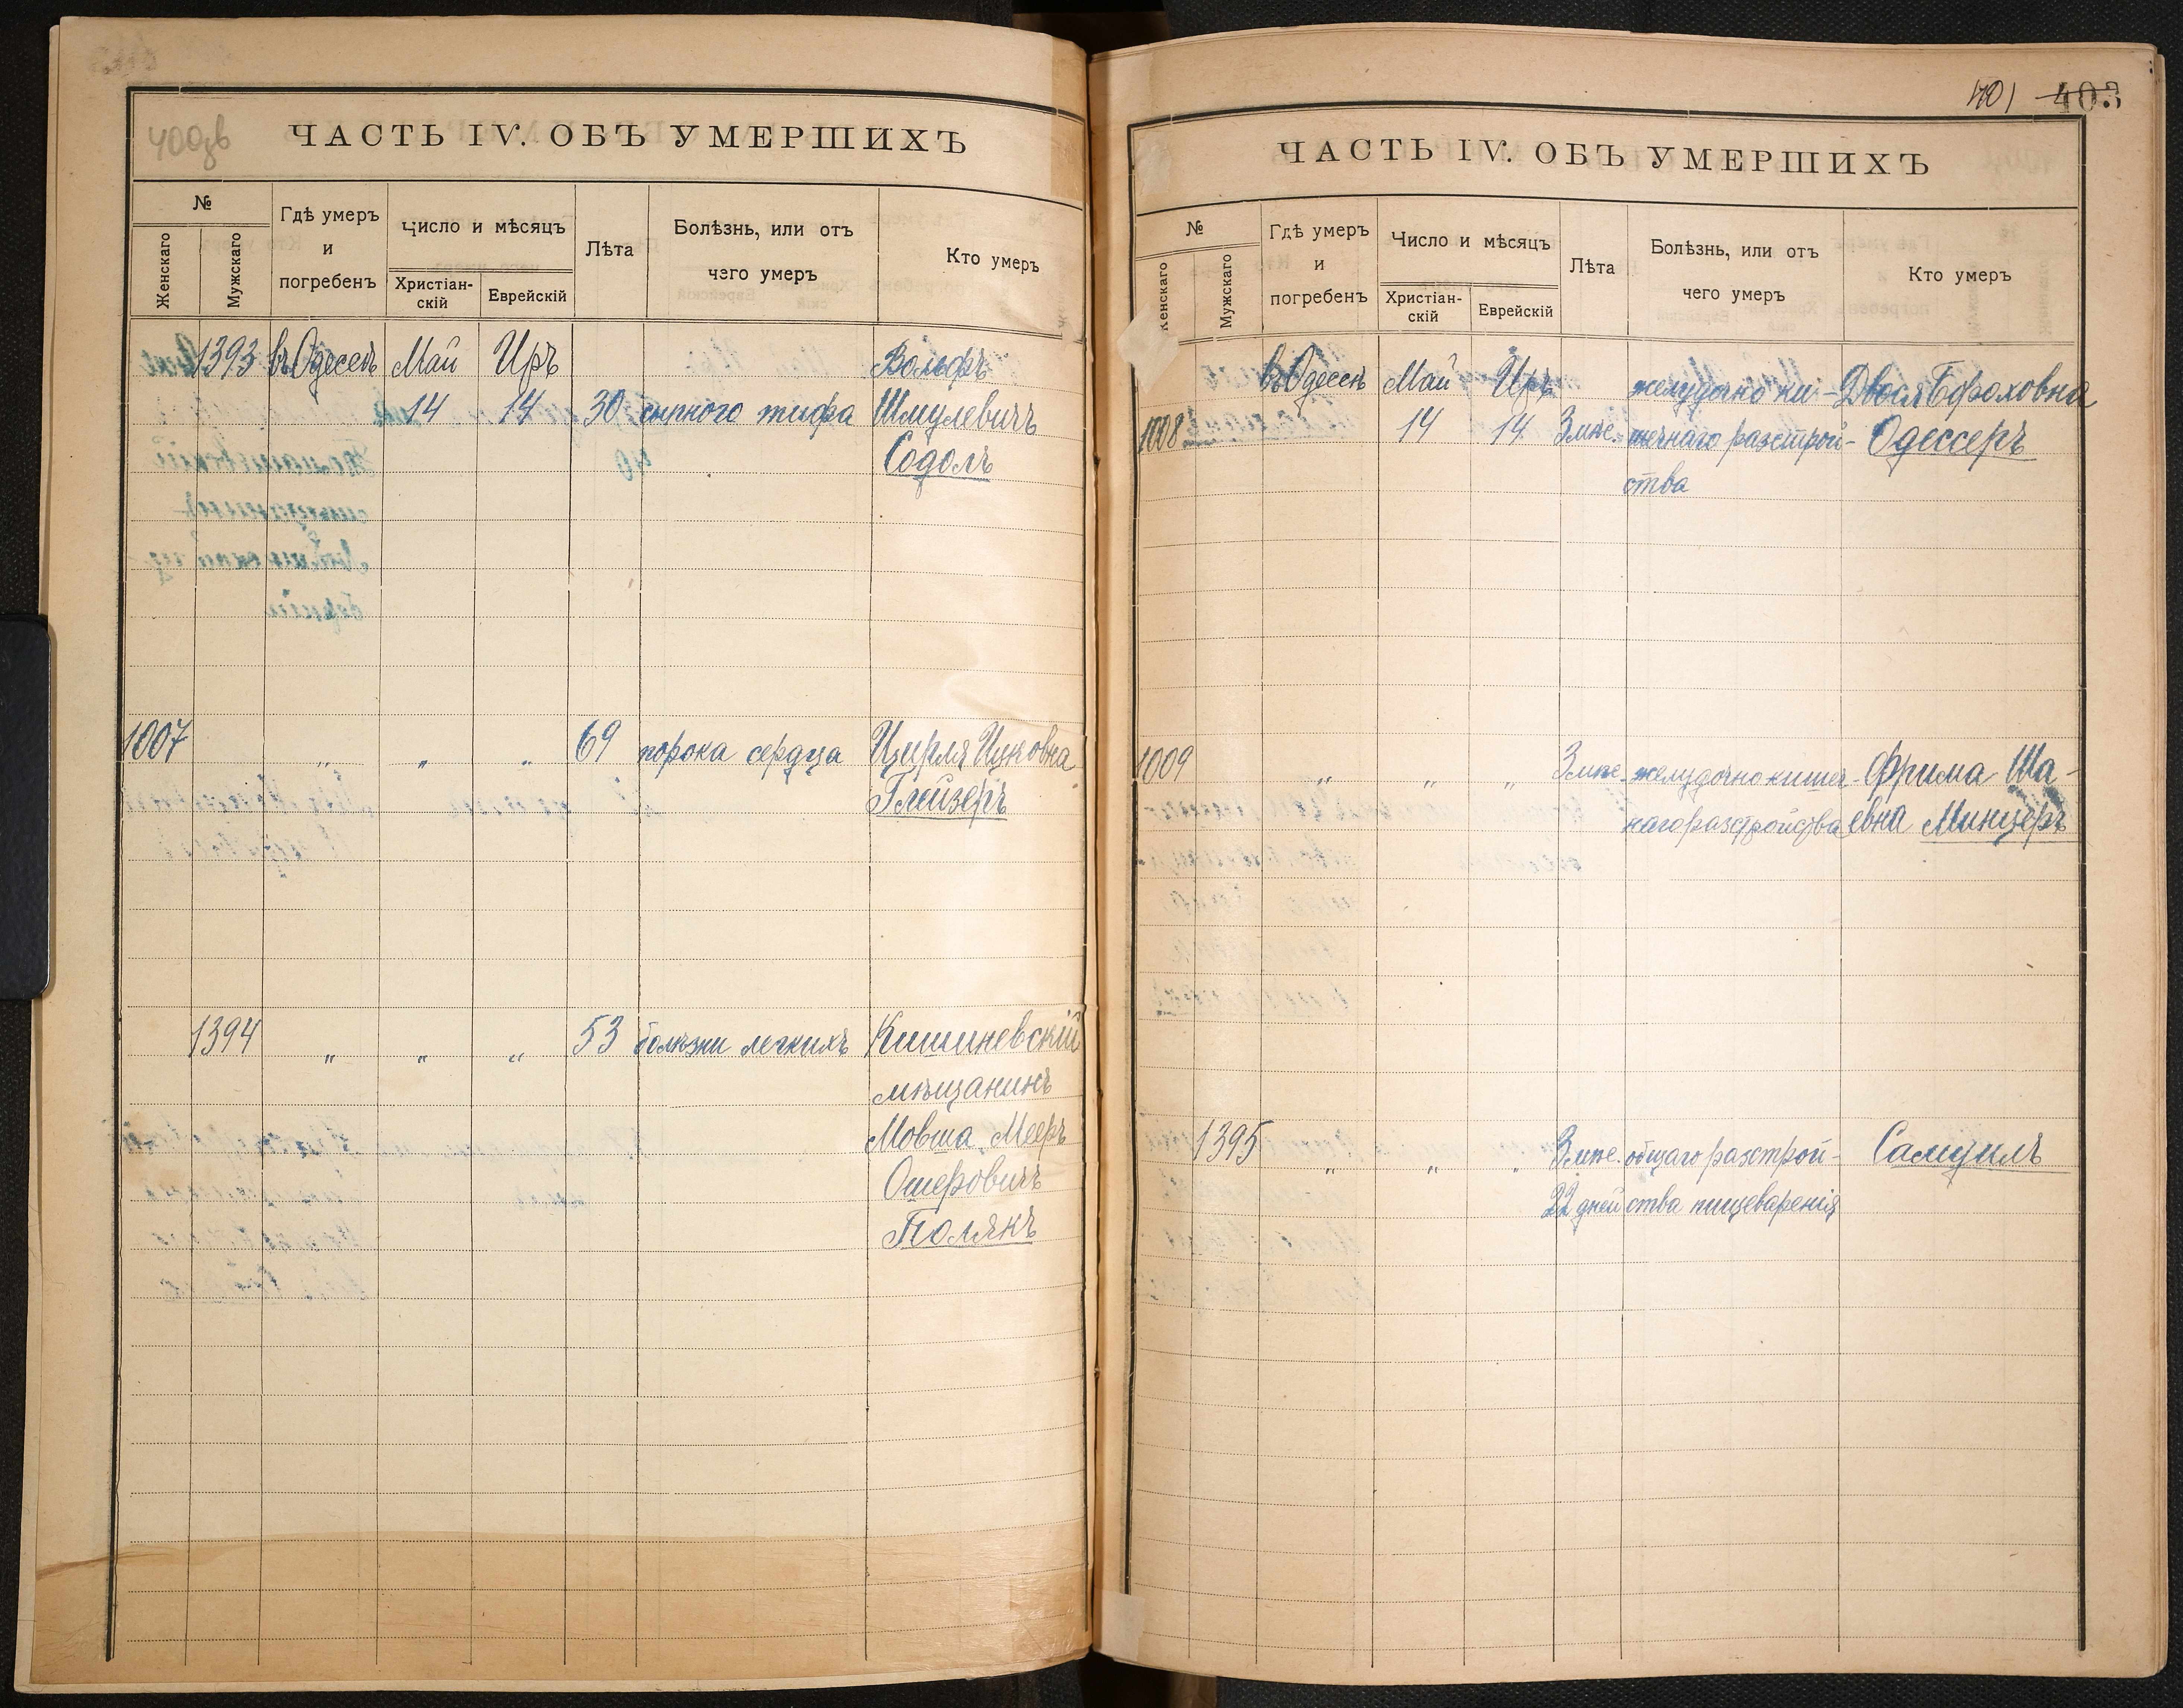 400зв
ЧАСТЬ IV. ОБЪ УМЕРШИХЪ
№
Женскаго
Мужскаго
Гдѣ умеръ
и
погребенъ
Число и мѣсяцъ
Христіан-
скій
Еврейскій
Лѣта
Болѣзнь, или отъ
чего умеръ
Кто умеръ
1393 въ Одессѣ Май Иръ Вольфъ
14 14 30 сыпного тифа Шмулевичъ
Содолъ
1007 " " " 69 порока сердца Цирля Ицковна
Глейзеръ
1394 " " " 53 болѣзни легкихъ Кишиневскій
мѣщанинъ
Мовша Мееръ
Ошеровичъ
Полякъ
401 403
ЧАСТЬ IV. ОБЪ УМЕРШИХЪ
№
Женскаго
Мужскаго
Гдѣ умеръ
и
погребенъ
Число и мѣсяцъ
Христіан-
скій
Еврейскій
Лѣта
Болѣзнь, или отъ
чего умеръ
Кто умеръ
въ Одессѣ Май Иръ желудочно ки- Двося Бороховна
1008 14 14 3 мѣс. шечнаго разстрой- Одессеръ
ства
1009 " " " 3 мѣс. желудочно кишеч- Фрима Ша-
наго разстройства евна Минцеръ
1395 " " " 3 мѣс. общаго разстрой- Самуилъ
22 дней ства пищеваренія